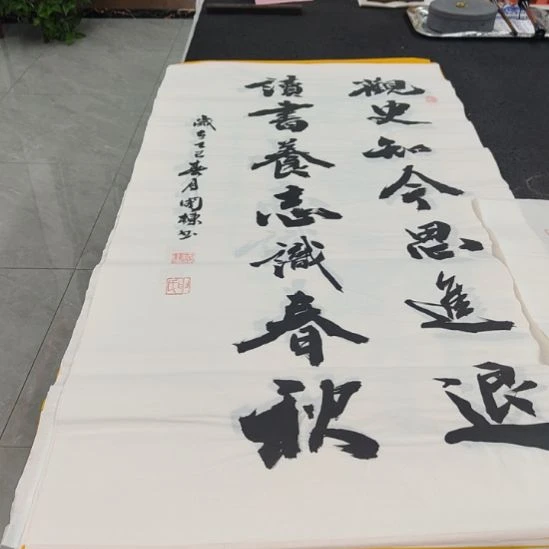 觀史知今思進退
讀書養志識春秋
歲在乙巳春月國棟書